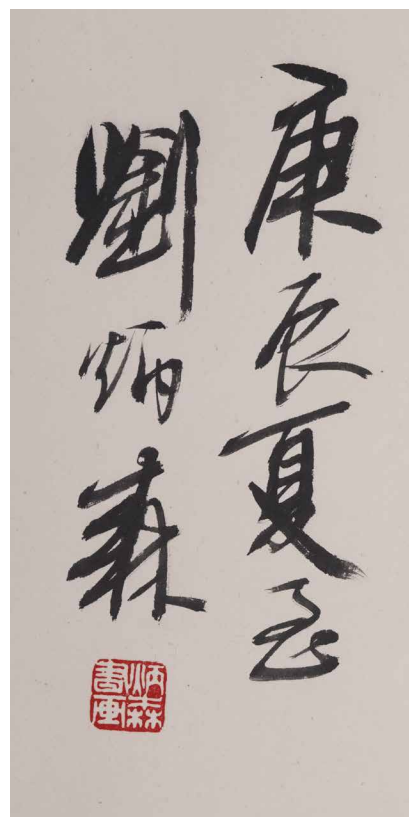 庚辰夏至
劉炳森
炳森書画